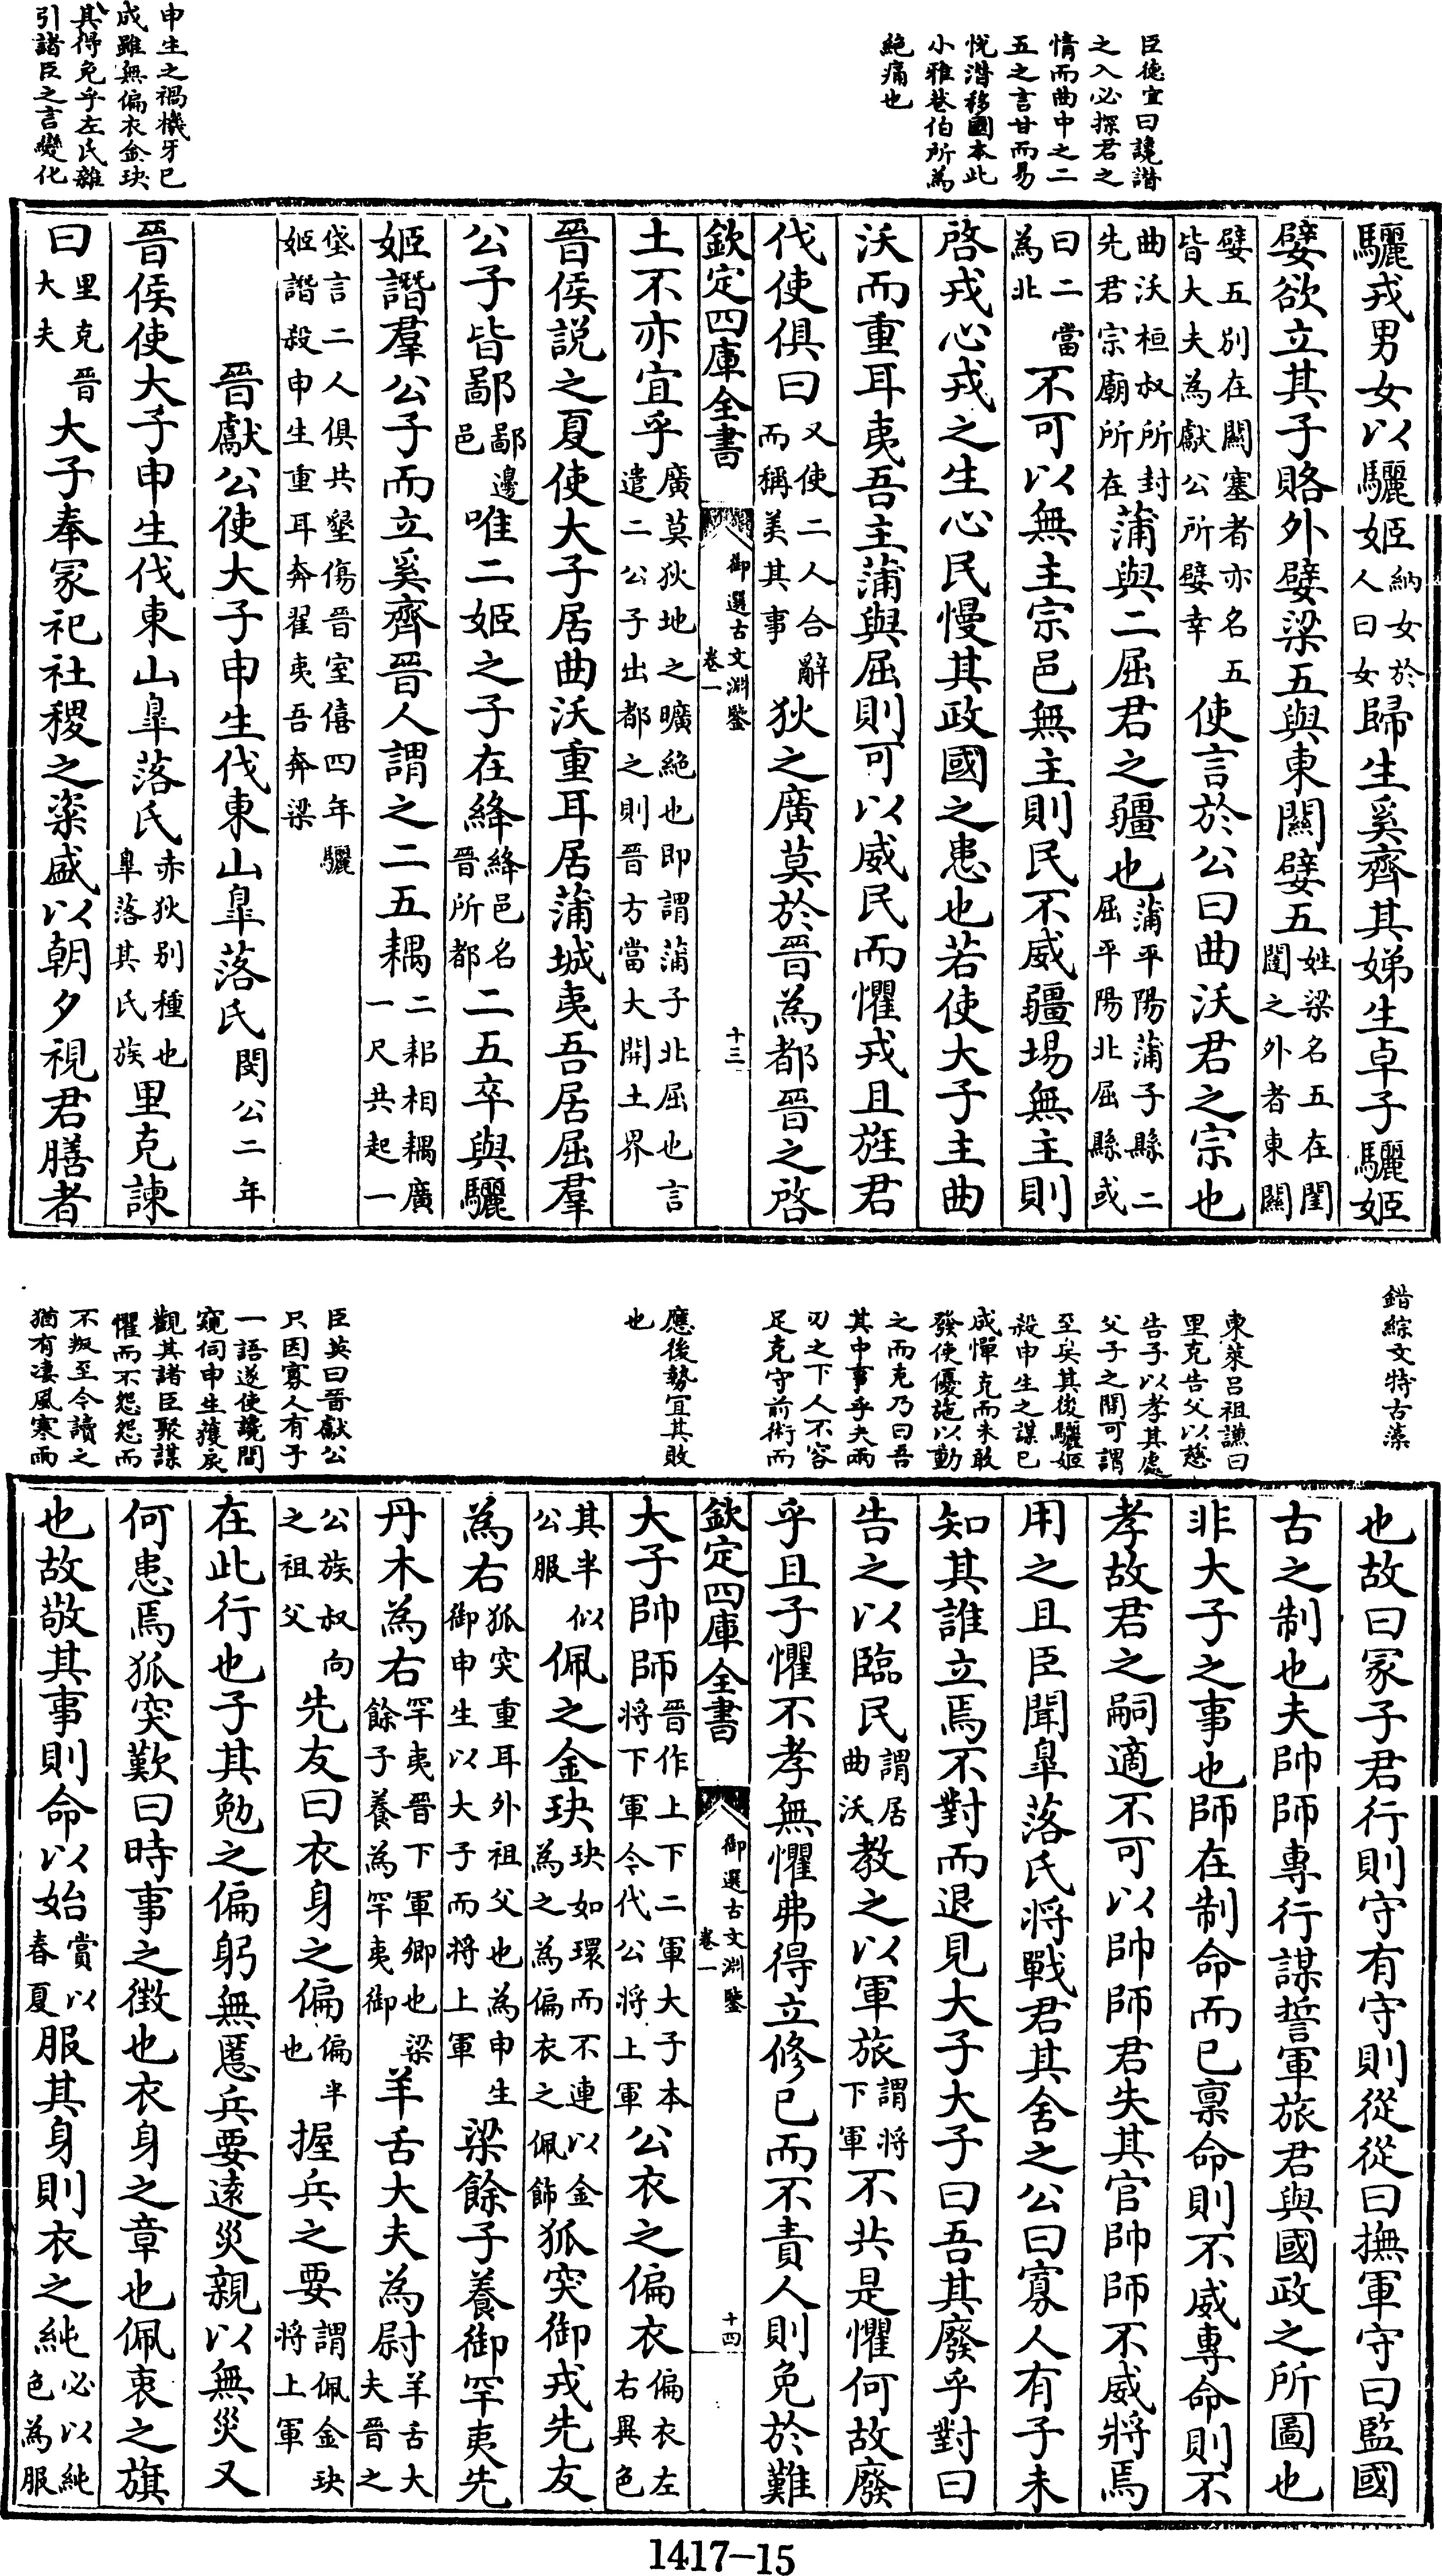 臣德宜曰譏譖
之入必探君之
情而曲中之二
五之言甘而易
悅潛移國本此
小雅巷伯所為
絶痛也
驪戎男女以驪姬納女於人曰女歸生奚齊其娣生卓子驪姬
嬖欲立其子賂外嬖梁五與東關嬖五姓梁名五在閨闥之外者東關
嬖五別在關塞者亦名五皆大夫為獻公所嬖幸使言於公曰曲沃君之宗也
曲沃桓叔所封先君宗廟所在蒲與二屈君之疆也蒲平陽蒲子縣二屈平陽北屈縣或
曰二當為北不可以無主宗邑無主則民不威疆埸無主則
啓戎心戎之生心民慢其政國之患也若使大子主曲
沃而重耳夷吾主蒲與屈則可以威民而懼戎且旌君
伐使俱曰又使二人合辭而稱美其事狄之廣莫於晉為都晉之啓
欽定四庫全書 御選古文淵鑒 卷一 十三
土不亦宜乎廣莫狄地之曠絶也即謂蒲子北屈也言遣二公子出都之則晉方當大開土界
晉侯説之夏使大子居曲沃重耳居蒲城夷吾居屈羣
公子皆鄙鄙邊邑唯二姬之子在絳絳邑名晉所都二五卒與驪
姬譖羣公子而立奚齊晉人謂之二五耦二耜相耦廣一尺共起一
垡言二人俱共墾傷晉室僖四年驪姬譖殺申生重耳奔翟夷吾奔梁
晉獻公使大子申生伐東山皐落氏閔公二年
晉侯使大子申生伐東山皐落氏赤狄別種也皐落其氏族里克諫
曰里克晉大夫大子奉冢祀社稷之粢盛以朝夕視君膳者
申生之禍機牙已
成雖無偏衣金玦
其得免乎左氏雜
引諸臣之言變化
錯綜文特古藻
東萊呂祖謙曰
里克告父以慈
告子以孝其處
父子之間可謂
至矣其後驪姬
殺申生之謀已
成憚克而未敢
發使優施以動
之而克乃曰吾
其中事乎夫兩
刃之下人不容
足克守前術而
應後勢宜其敗
也
也故曰冢子君行則守有守則從從曰撫軍守曰監國
古之制也夫帥師專行謀誓軍旅君與國政之所圖也
非大子之事也師在制命而已稟命則不威專命則不
孝故君之嗣適不可以帥師君失其官帥師不威將焉
用之且臣聞皐落氏將戰君其舍之公曰寡人有子未
知其誰立焉不對而退見大子大子曰吾其廢乎對曰
告之以臨民謂居曲沃教之以軍旅謂將下軍不共是懼何故廢
乎且子懼不孝無懼弗得立修已而不責人則免於難
欽定四庫全書 御選古文淵鑒 卷一 十四
大子帥師晉作上下二軍大子本將下軍今代公將上軍公衣之偏衣偏衣左右異色
其半似公服佩之金玦玦如環而不連以金為之為偏衣之佩飾狐突御戎先友
為右狐突重耳外祖父也為申生御申生以大子而將上軍梁餘子養御罕夷先
丹木為右罕夷晉下軍卿也梁餘子養為罕夷御羊舌大夫為尉羊舌大夫晉之
公族叔向之祖父先友曰衣身之偏偏半也握兵之要謂佩金玦將上軍
在此行也子其勉之偏躬無慝兵要遠災親以無災又
何患焉狐突歎曰時事之徵也衣身之章也佩衷之旗
也故敬其事則命以始賞以春夏服其身則衣之純必以純色為服
臣英曰晉獻公
只因寡人有子
一語遂使讒間
窺伺申生獲戾
觀其諸臣聚謀
懼而不怨怨而
不叛至今讀之
猶有凄風寒雨
1417-15